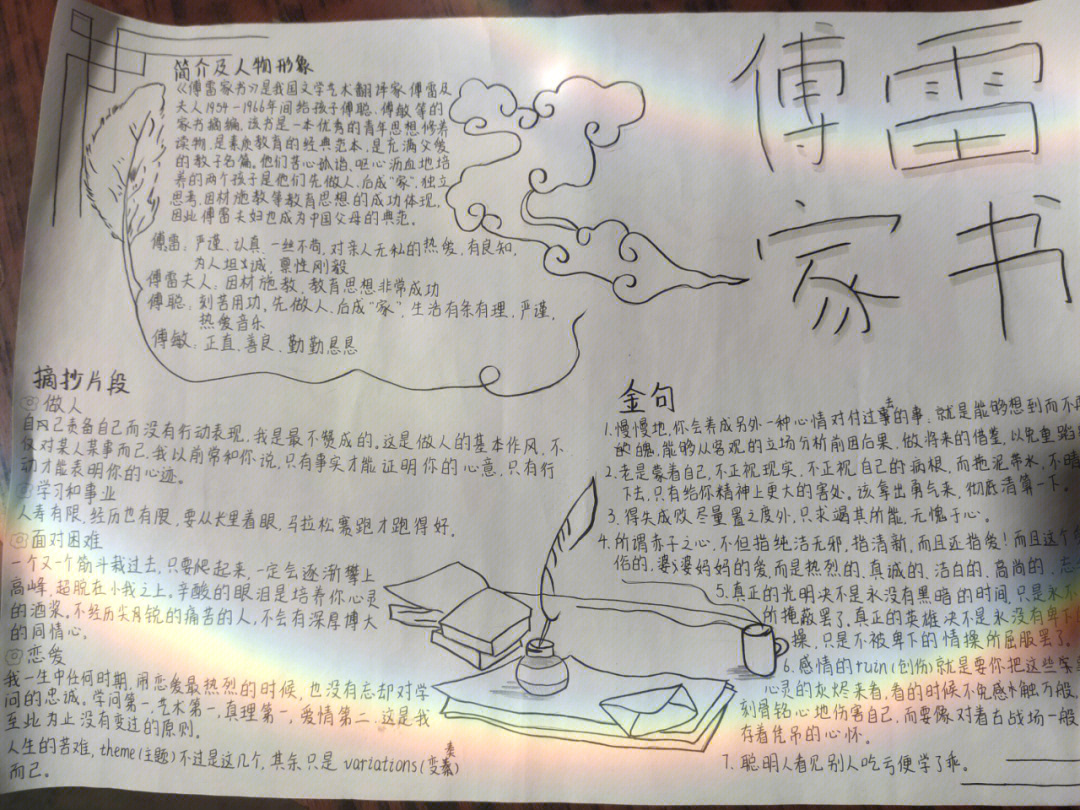 傅雷
家书
简介及人物形象
《傅雷家书》是我国文学艺术翻译家傅雷及
夫人1954-1966年间给孩子傅聪、傅敏等的
家书摘编,该书是一本优秀的青年思想修养
读物,是素质教育的经典范本,是充满父爱
的教子名篇。他们苦心孤诣、呕心沥血地培
养的两个孩子是他们先做人、后成"家",独立
思考,因材施教等教育思想的成功体现。
因此傅雷夫妇也成为中国父母的典范。
傅雷:严谨、认真、一丝不苟,对亲人无私的热爱,有良知,
为人坦诚,禀性刚毅
傅雷夫人:因材施教,教育思想非常成功
傅聪:刻苦用功,先做人、后成"家",生活有条有理,严谨,
热爱音乐
傅敏:正直、善良、勤勤恳恳
摘抄片段
做人
自己责备自己而没有行动表现,我是最不赞成的,这是做人的基本作风,不
仅对某人某事而已,我以前常和你说,只有事实才能证明你的心意,只有行
动才能表明你的心迹。
学习和事业
人寿有限,经历也有限,要从长里着眼,马拉松赛跑才跑得好。
面对困难
一个又一个筋斗栽过去,只要爬起来,一定会逐渐攀上
高峰,超脱在小我之上,辛酸的眼泪是培养你心灵
的酒浆。不经历尖锐的痛苦的人,不会有深厚博大
的同情心。
恋爱
我一生中任何时期,闹恋爱最热烈的时候,也没有忘却对学
问的忠诚。学问第一,艺术第一,真理第一,爱情第二,这是我
至此为止没有变过的原则。
人生的苦难,theme(主题)不过是这几个,其余只是variations(变奏)
而已。
金句
1.慢慢地,你会养成另外一种心情对付过去的事:就是能够想到而不再
魄,能够从客观的立场分析前因后果,做将来的借鉴,以免重蹈
2.老是蒙着自己,不正视现实,不正视自己的病根,而拖泥带水,不晴
下去,只有给你精神上更大的害处。该拿出勇气来,彻底清算一下。
3.得失成败尽量置之度外,只求竭其所能,无愧于心。
4.所谓赤子之心,不但指纯洁无邪,指清新,而且还指爱!而且这个
俗的,婆婆妈妈的爱,而是热烈的、真诚的、洁白的、高尚的、
5.真正的光明决不是永没有黑暗的时间,只是永不
所掩蔽罢了。真正的英雄决不是永没有卑下的
操,只是不被卑下的情操所屈服罢了。
6.感情的ruin(创伤)就是要你把这些
心灵的灰烬来看,看的时候不免感触万般,
刻骨铭心地伤害自己,而要像对着古战场一般
存着凭吊的心怀。
7.聪明人看见别人吃亏便学了乖。